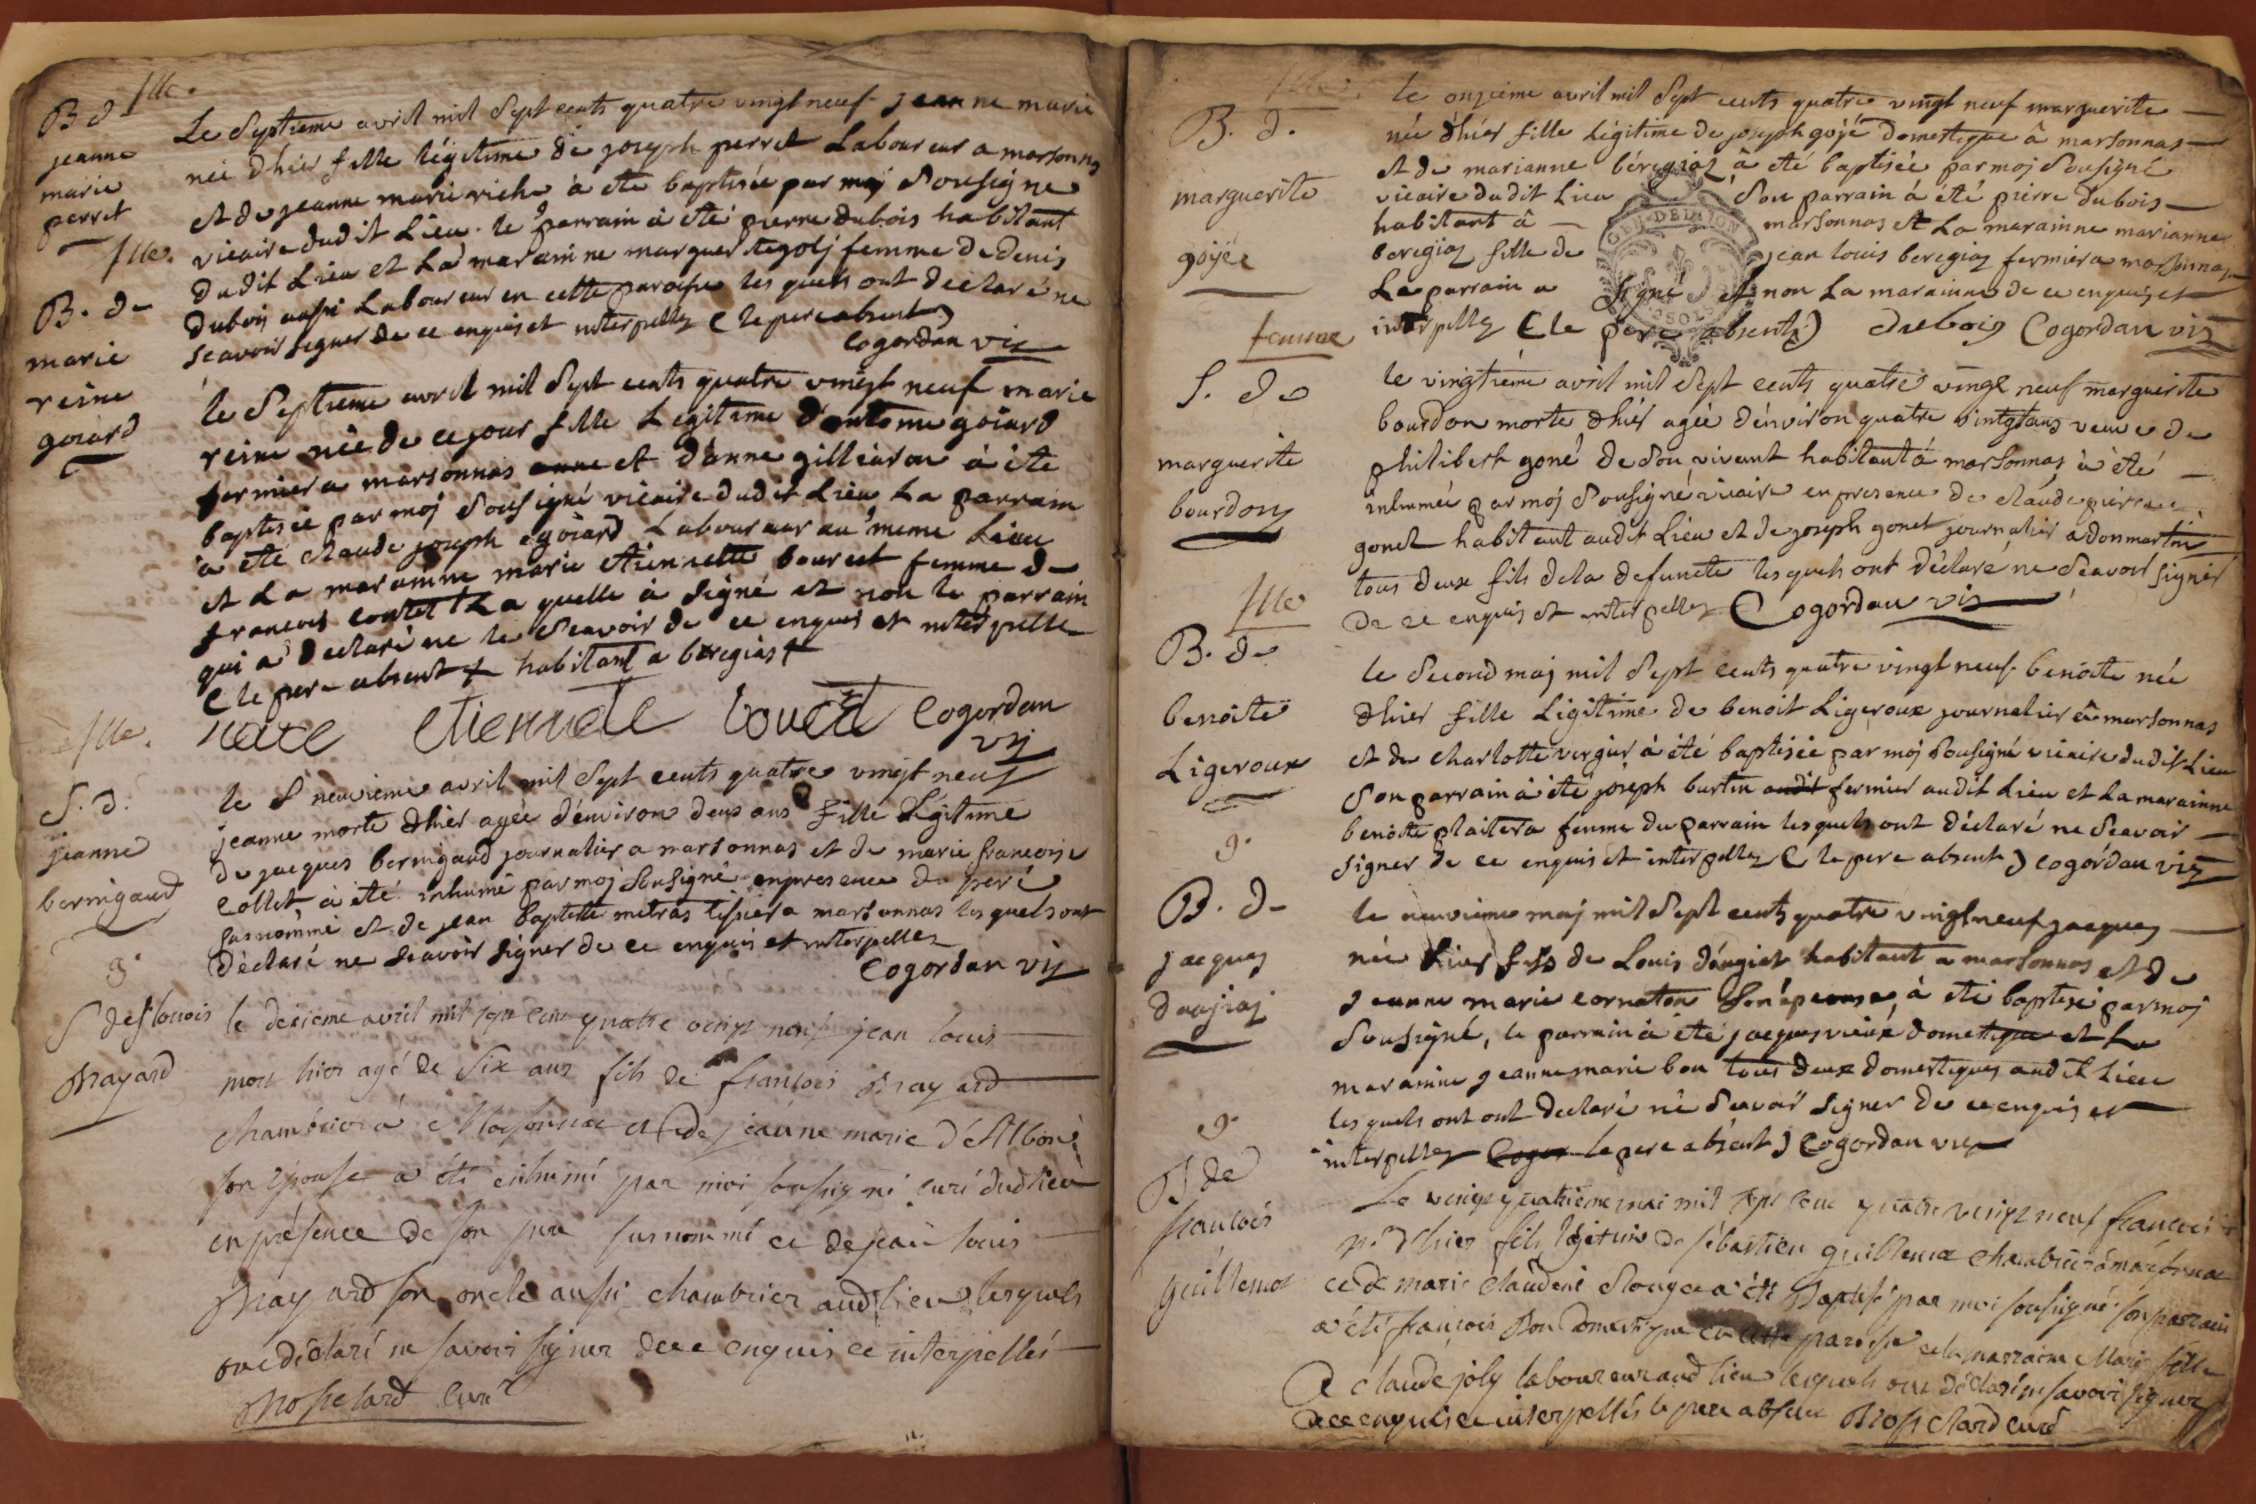 fille.
B d
jeanne
marie
perret
Le Septieme avril mil Sept cents quatre vingt neuf jeanne marie
née dhier fille légitime de joseph perret Laboureur a marsonnas
et de jeanne marie riche à été baptisée par moj Sousigné
vicaire dudit Lieu. le parrain à été pierre dubois habitant
dudit Lieu et La marainne marguerite golj femme de denis
dubois aussi Laboureur en cette paroisse les quels ont déclaré ne
scavoir signer de ce enquis et interpellez (le pere absent)
Cogordan vic
fille.
B. de
marie
reine
goiard
le Septieme avril mil Sept cents quatre vingt neuf marie
reine née de ce jour fille Legitime d'antoine goiard
fermier a marsonnas et d'anne gilliaron à été
baptisée par moj Sousigné vicaire dudit Lieu La parrain
à été claude joseph goiard Laboureur au meme Lieu
et La marainne marie etiennette bouret femme de
francois La quelle à signé et non le parrain
qui a déclaré ne le Scavoir de ce enquis et interpelle
(le pere absent + habitant a beregias +
etiennete bouret Cogordan
vic
fille.
S. d.
jeanne
bernigaud
le neuvieme avril mil Sept cents quatre vingt neuf
jeanne morte dhier agée d'environ deux ans fille Légitime
de jacques bernigaud journalier a marsonnas et de marie francoise
collet à été inhumé par moj Sousigné en presence du peré
susnommé et de jean baptiste metras tissier a marsonnas les quels ont
déclaré ne scavoir signer de ce enquis et interpellez
Cogordan vic
g.
S de jlouis
Mayard
le dixieme avril mil sept cent quatre vingt neuf jean louis
mort hier agé de six ans fils de francois Mayard
chambrier á Marsonnas et de jeanne marie d'Albon
son épouse a été inhumé par moi soussigné curé dud lieu
en présence de son pere susnommé et de jean louis
Mayard son oncle aussi chambrier aud lieu lesquels
ont déclaré ne savoir signer de ce enquis et interpellés
curé
fille.
B. d.
marguerite
gojée
le onzieme avril mil Sept cents quatre vingt neuf marguerite
née dhier fille Légitime de joseph gojé domestique â marsonnas
et de marianne béregiaz à été baptisée par moj Sousigné
vicaire dudit Lieu Son parrain à été pierre dubois
habitant â marsonnas et La marainne marianne
beregiaz fille de jean louis beregiaz fermier a marsonnas
Le parrain a signé et non La marainne de ce enquis et
interpellez (le pere absent) dubois Cogordan vic
GEN. DE DIJON
femme
S. de
marguerite
bourdon
le vingtiéme avril mil Sept cents quatre vingt neuf marguerite
bourdon morte dhier agée d'environ quatre vintgt ans veuve de
philibert goné de Son vivant habitant á marsonnas à été
inhumée par moj Sousigné vicaire en presence de claude pierre
gonet habitant audit Lieu et de joseph gonet journalier a donmartin
tous deux fils dela defuncte les quels ont déclaré ne Scavoir signer
de ce enquis et interpellez Cogordan vic
fille
B. de
benoite
Ligeroux
le Second maj mil Sept cents quatre vingt neuf benoite née
dhier fille Légitime de benoit Ligeroux journalier â marsonnas
et de charlotte vergier à été baptisée par moj Sousigné vicaire dudit Lieu
Son parrain à été joseph burtin audit fermier audit Lieu et La marainne
benoite femme du parrain les quels ont déclaré ne Scavoir
signer de ce enquis et interpellez (le pere absent) cogordan vic
g.
B. de
jacques
le neuvieme maj mil Sept cents quatre vingt neuf jacques
née hier fils de Louis habitant a marsonnas et de
jeanne marie cornaton Son épouse à été baptisé par moj
Sousigné, le parrain à été jacques vieux dometique et La
marainne jeanne marie bon tous deux domestiques audit Lieu
les quels ont ont declaré ne Scavoir signer de ce enquis et
interpellez Cogor le pere absent) Cogordan vic
g.
B de
francois
guillemot
Le vingt quatrieme mai mil sept cent quatre vingt neuf francois
né d'hier fils légitime de sébastien guillemot chambrier a marsonnas
et de marie claudine a été Baptisé par moi soussigné son parrain
a été francois Bon domestique en cette paroisse et la marraine Marie fille
de claude joly laboureur aud lieu lesquels ont déclaré ne savoir signer
de ce enquis et interpellés le pere absent curé